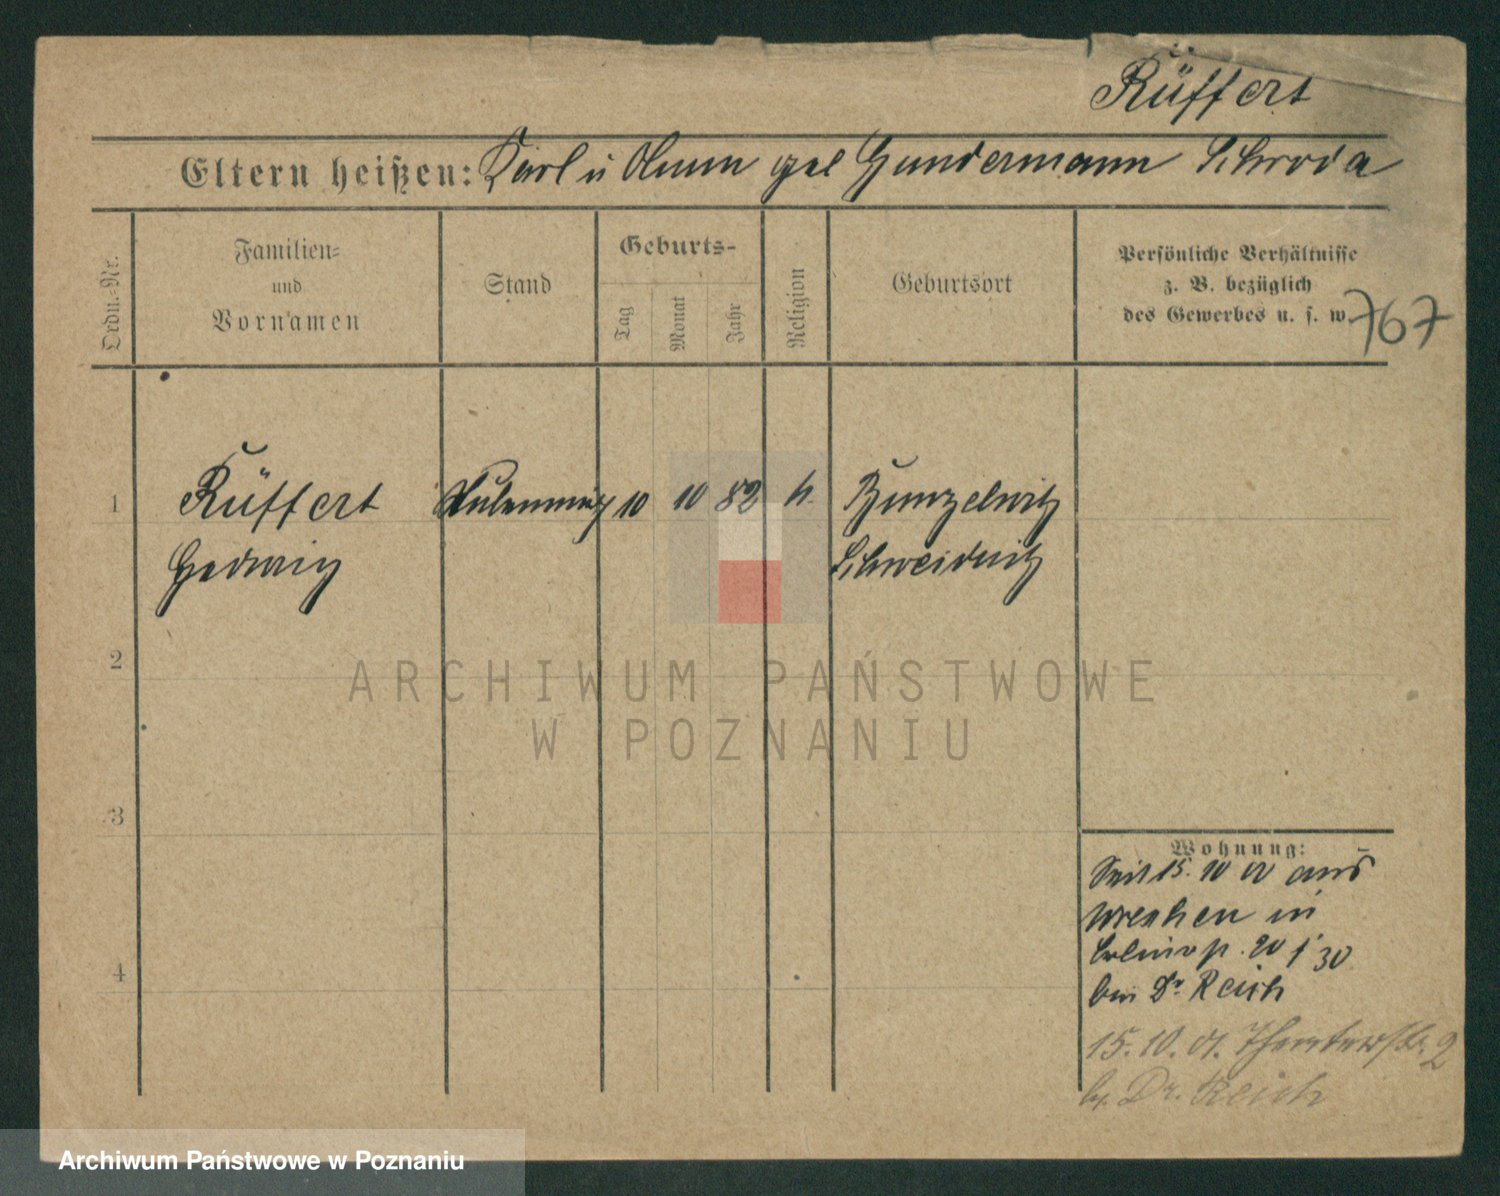 Rüffert
Eltern heißen: Karl u Anna geb Gundermann Schroda
Ordn.-Nr.
Familien-
und
Vornamen
Stand
Geburts-
Tag
Monat
Jahr
Religion
Geburtsort
Persönliche Verhältnisse
z. B. bezüglich
des Gewerbes u. s. w.
767
1 Rüffert 10 10 82 k. Bunzelwitz
Hedwig Schweidnitz
2
3
4
Wohnung:
Seit 15. 10 00 aus
Wreschen in
20 30
bei Dr Reich
15. 10. 01. Theaterstr. 2
b. Dr. Reich
ARCHIWUM PAŃSTWOWE
W POZNANIU
Archiwum Państwowe w Poznaniu